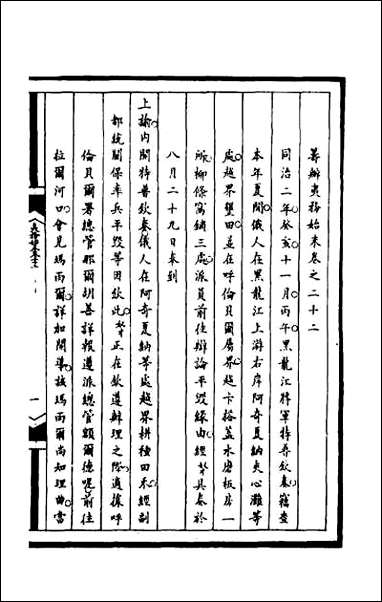 籌辦夷務始末卷之二十二
同治二年癸亥十一月丙午黑龍江將軍特普欽奏竊查
本年夏間俄人在黑龍江上游右岸阿奇夏納夾心灘等
處越界墾田並在呼倫貝爾屬界越卡搭蓋水磨板房一
所柳條窩鋪三處派員前往辯論平毀緣由經𡘊具奏於
八月二十九日奉到
上諭內閣特普欽奏俄人在阿奇夏納等處越界耕種田禾經副
都統關保率兵平毀等因欽此𡘊正在欽遵辦理之際適據呼
倫貝爾署總管那爾胡善詳報遵派總管額爾德呢前往
拉爾河口會見瑪雨爾詳加開導該瑪雨爾尚知理曲當
一